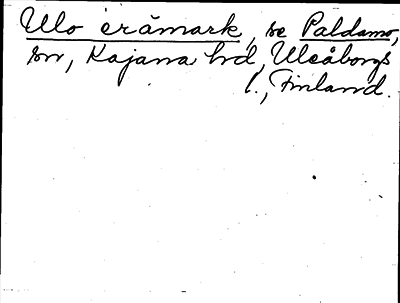 Ulo erämark, se Paldamo,
sn, Kajana hd, Uleåborgs
l., Finland.